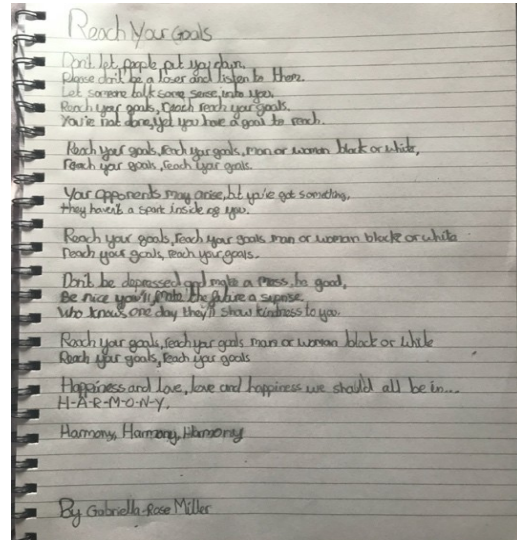 Reach Your Goals
Don't let people put you down,
Please don't be a loser and listen to them.
Let someone talk some sense, into you,
Reach your goals, reach reach your goals.
You're not done, yet you have a goal to reach.
Reach your goals, reach your goals, man or woman black or white,
reach your goals, reach your goals.
Your opponents may arise, but you've got something,
they haven't a spark inside of you.
Reach your goals, reach your goals man or woman blacke or white
reach your goals, reach your goals.
Don't be depressed and make a mess, be good,
Be nice you'll make the future a suprise.
Who knows, one day they'll show kindness to you.
Reach your goals, reach your goals man or woman black or white
Reach your goals, reach your goals
Happiness and love, love and happiness we should all be in...
H-A-R-M-O-N-Y.
Harmony, Harmony, Harmony
By Gabriella-Rose Miller